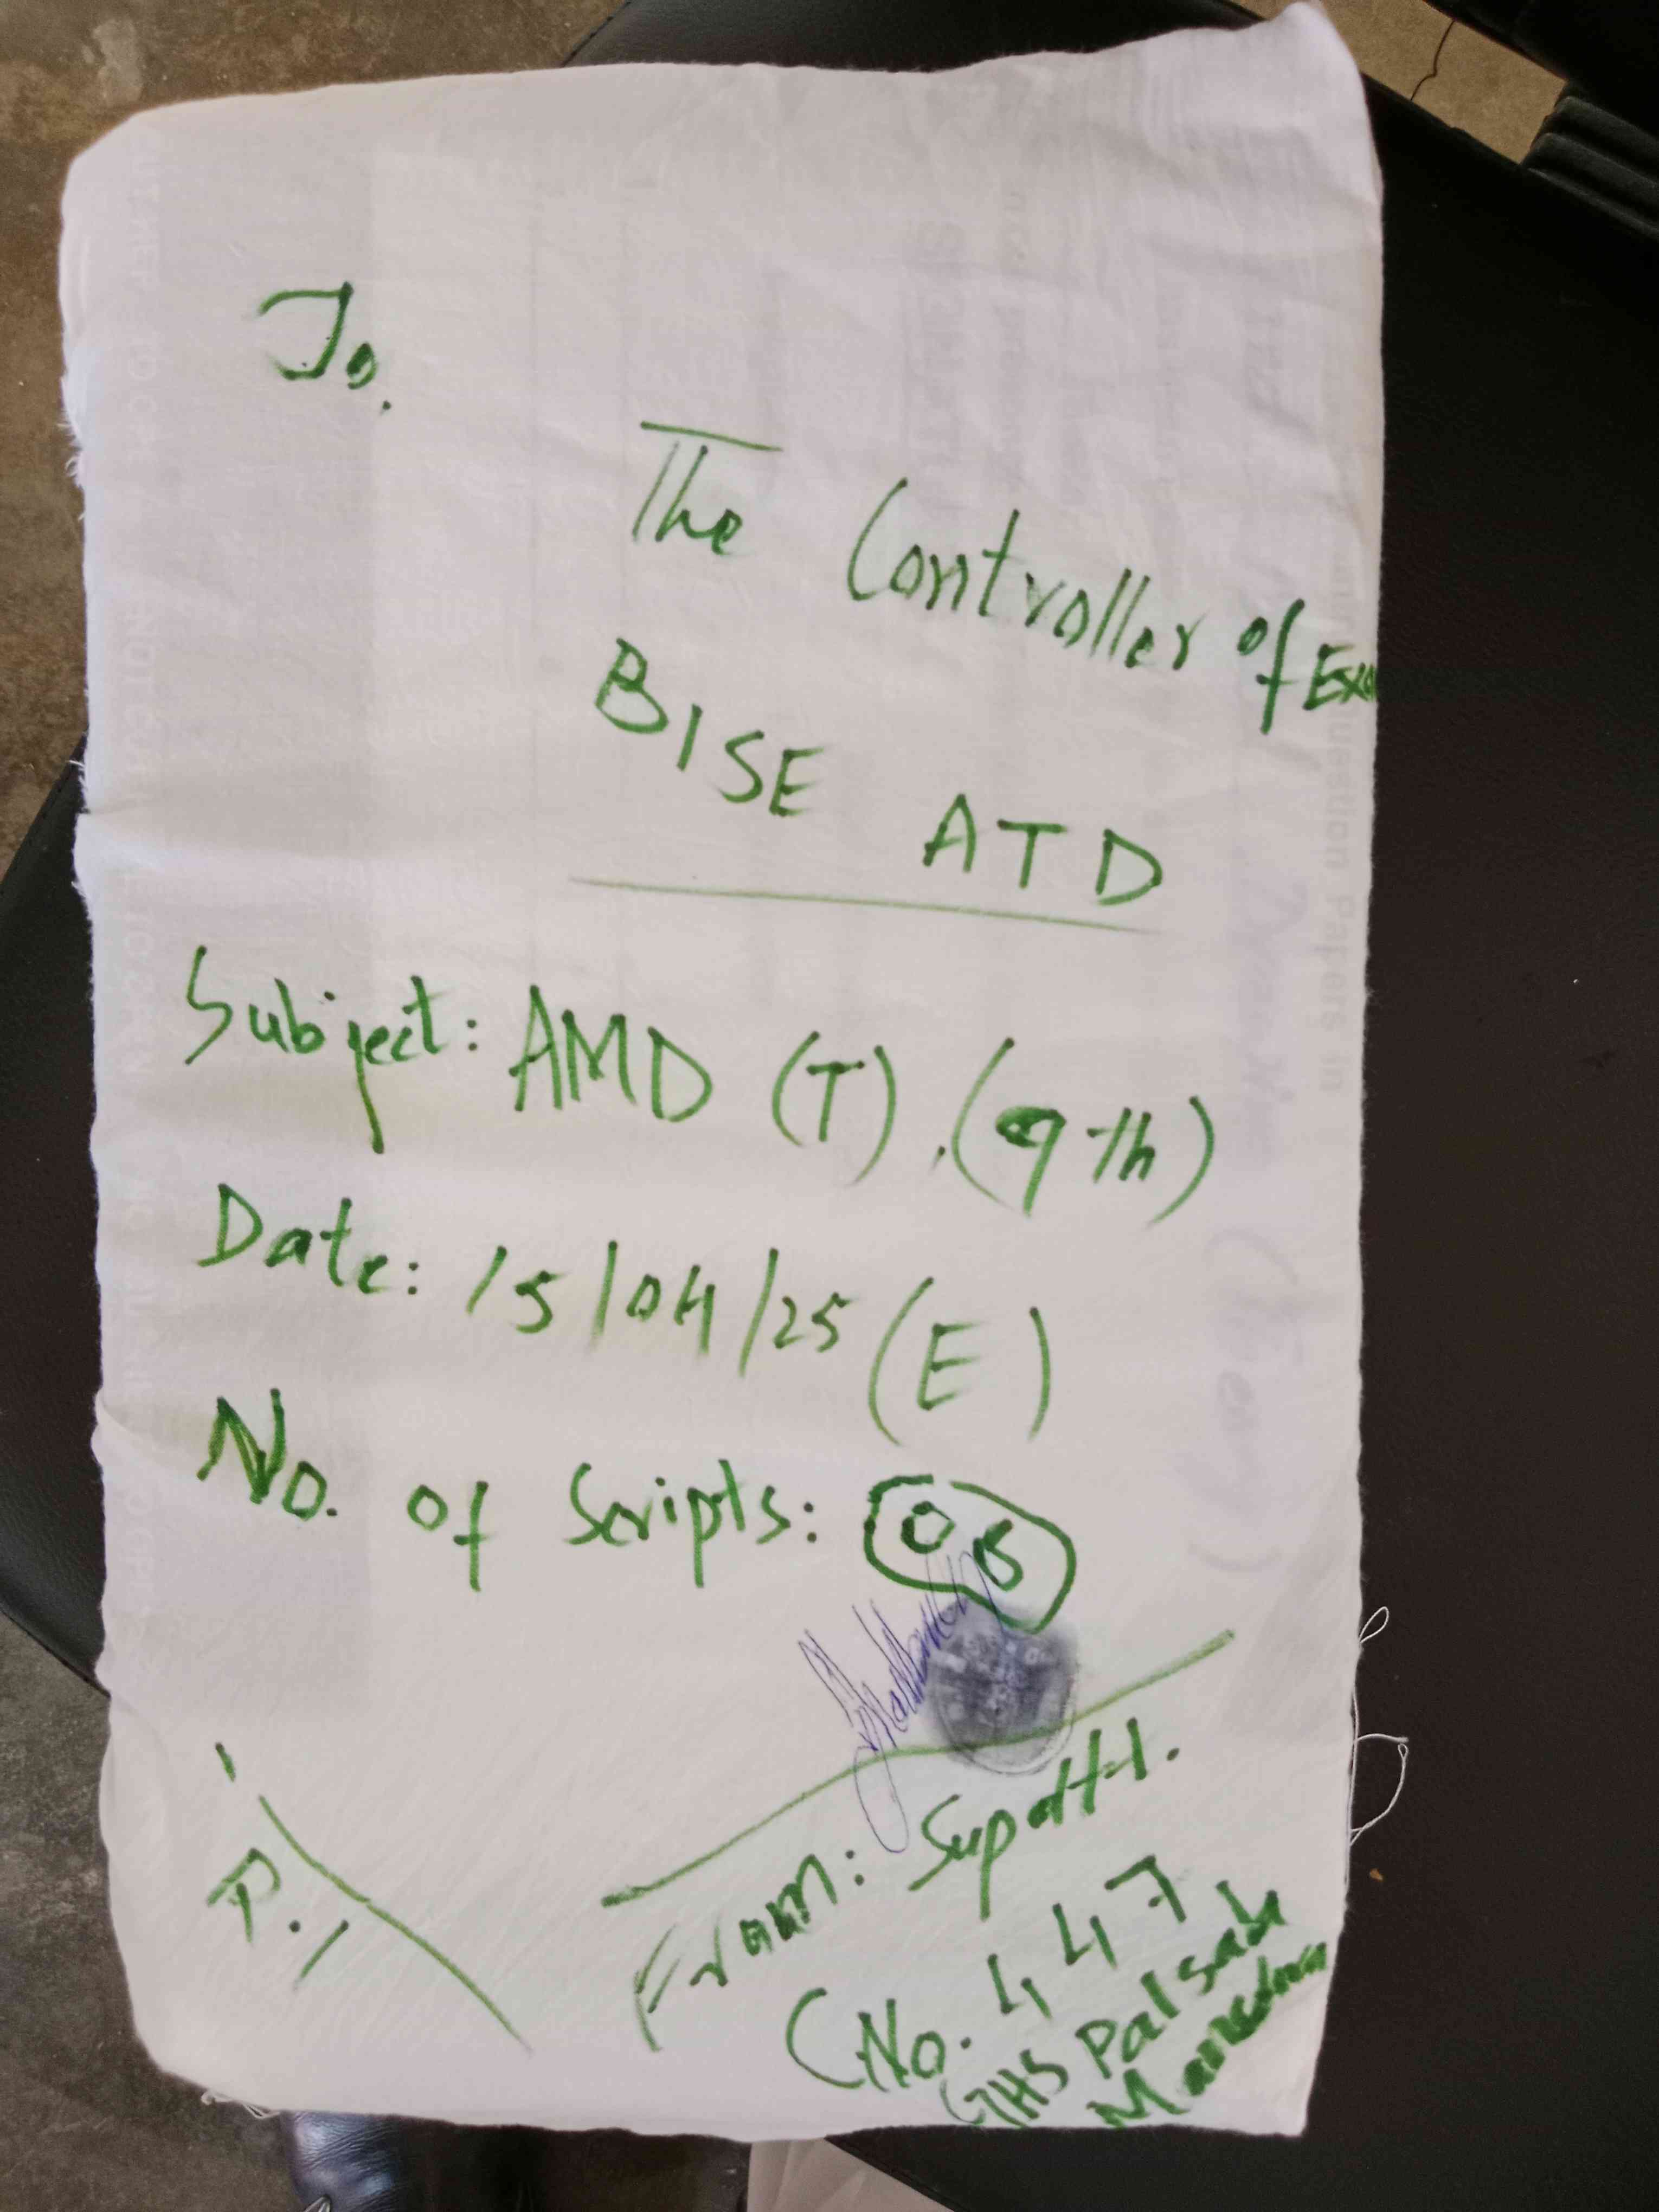 To.
The Controller of Exam
BISE ATD
Subject: AMD (T). (9th)
Date: 15/04/25 (E)
No. of Scripts:
From: Supdtt.
CNo. 447
GHS Palsala
Mansehra
P.1